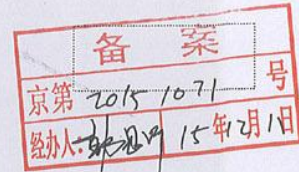 备案
京第 2015 1071 号
经办人: 15年12月1日